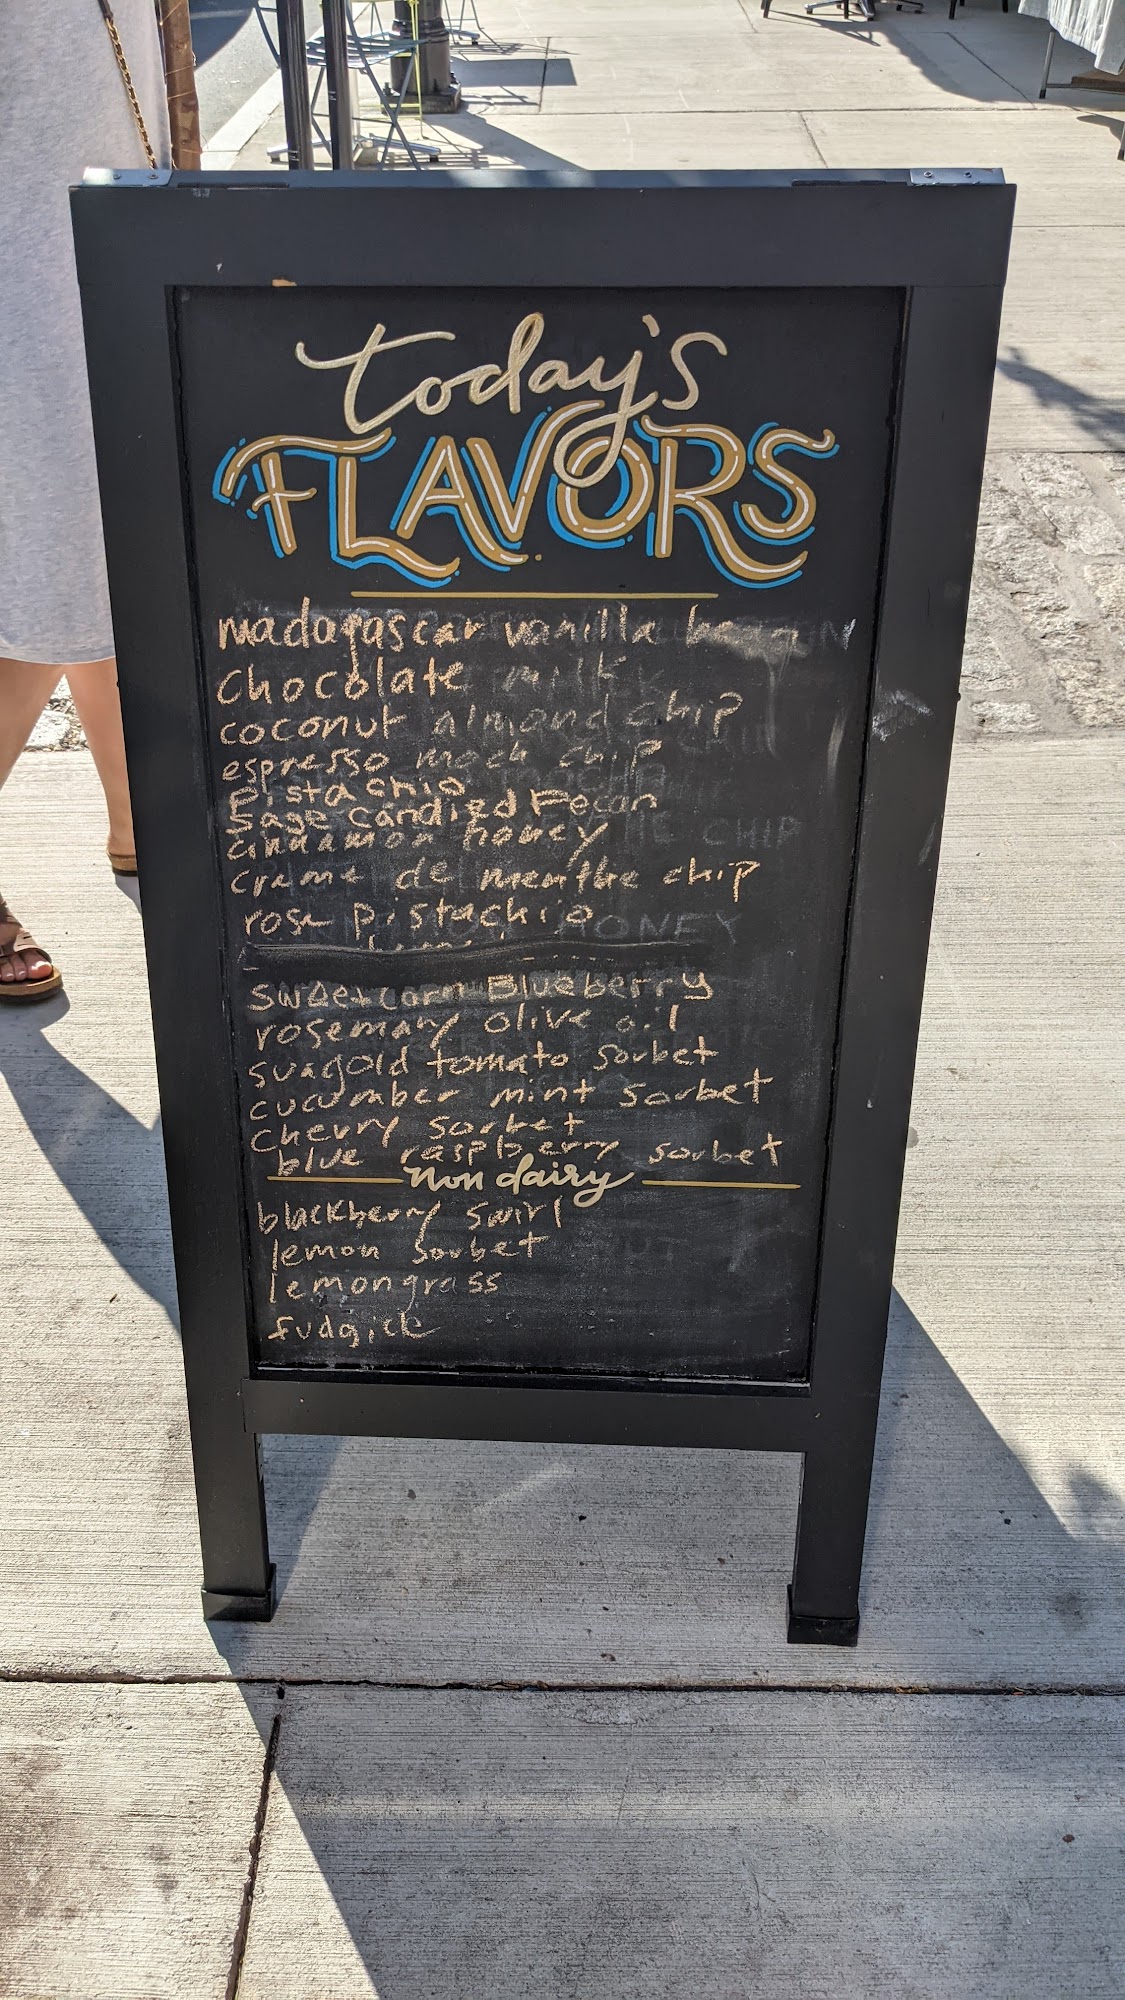 today's
FLAVORS
madagascar vanilla bean
chocolate milk
coconut almond chip
espresso moch chip
Pistachio
sage candied Pecan
cinnamon honey
creme de menthe chip
rose pistachio
HONEY
sweetcorn Blueberry
rosemary olive oil
sungold tomato sorbet
cucumber mint sorbet
cherry sorbet
blue raspberry sorbet
Non dairy
blackberry swirl
lemon sorbet
lemongrass
fudgicle